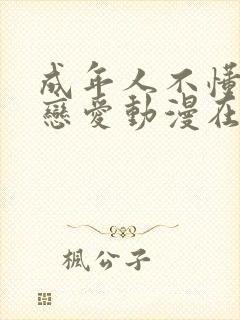 成年人不懂
戀愛動漫在
楓公子